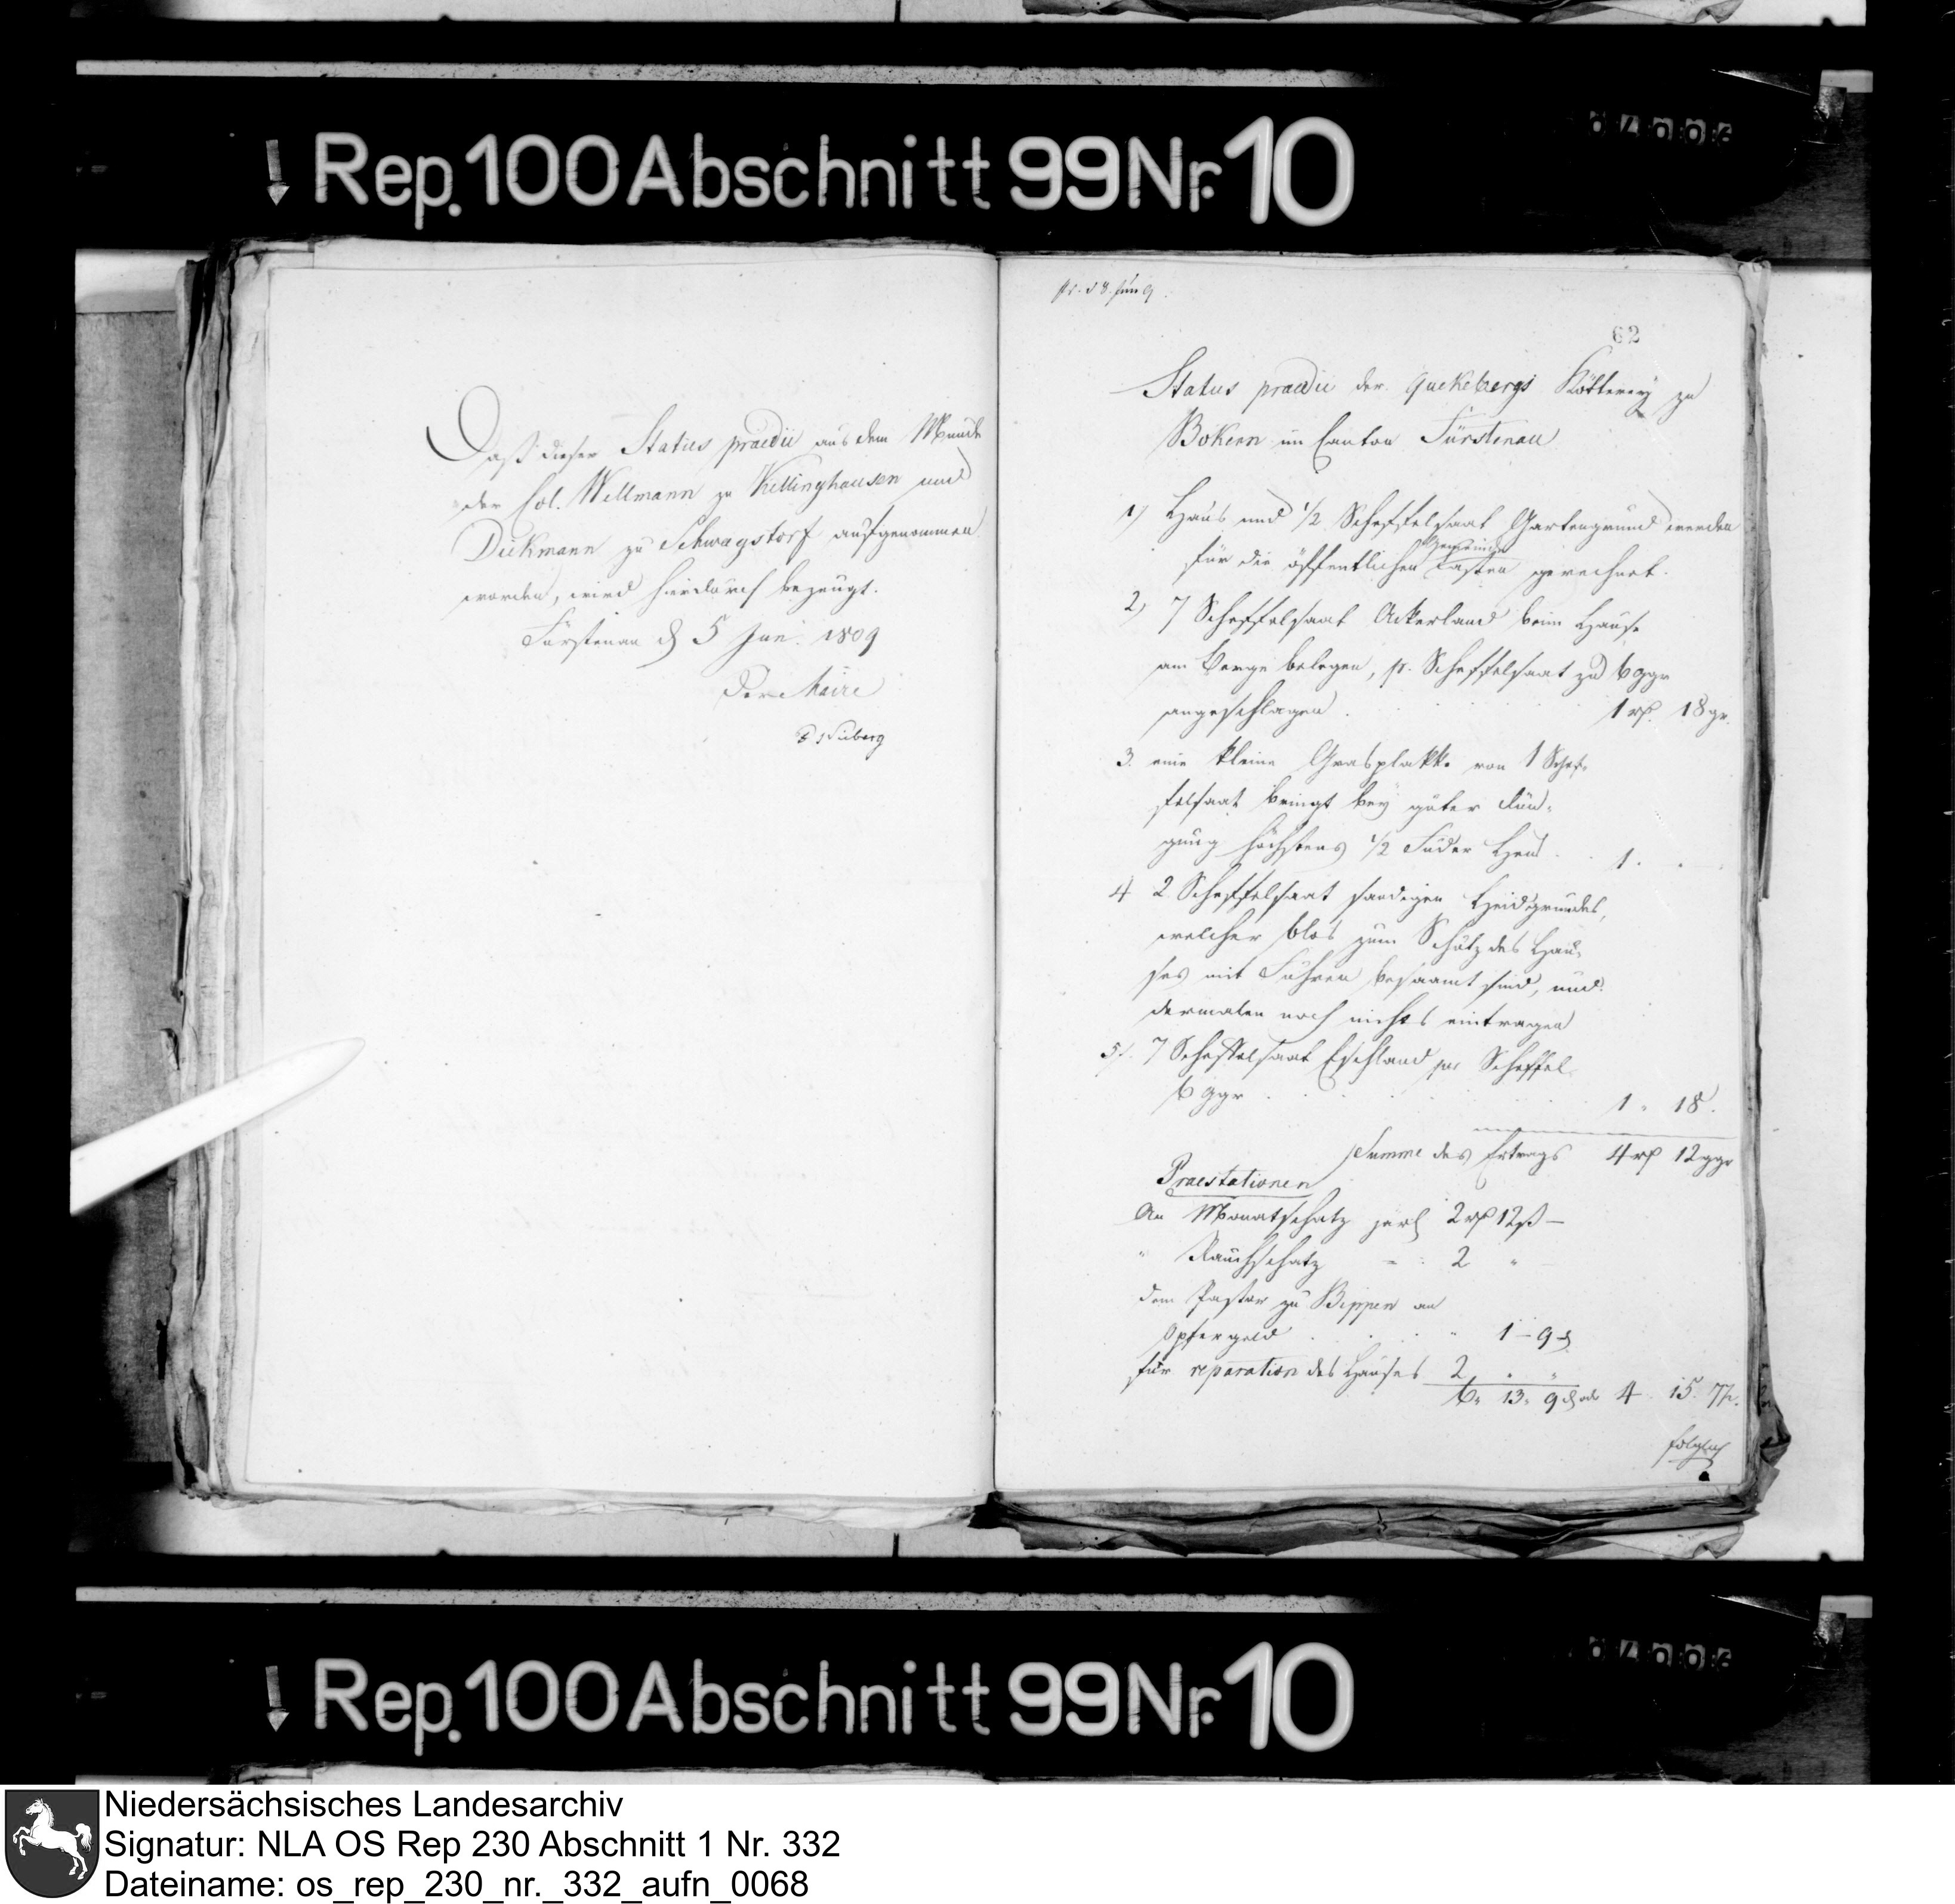 ↓ Rep. 100 Abschnitt 99 Nr. 10
Daß dieser Status praedii aus dem Munde
der Col. Wellmann zu Vellinghausen und
Diekmann zu Schwagstorf aufgenommen
worden, wird hierdurch bezeugt.
Fürstenau d 5 Jun. 1809
Der Maire
pr. d 8. Jun 9.
62
Status praedii der Quekebergs Kötterey zu
Bokern im Canton Fürstenau
1) Haus und 1/2 Scheffelsaat Gartengrund werden
für die öffentlichen Lasten gerechnet.
2) 7 Scheffelsaat Ackerland beim Hause
am Berge belegen, p. Scheffelsaat zu 6 ggr
angeschlagen . 1 rth. 18 gr.
3. eine kleine Grasplakke von 1 Schef-
felsaat bringt bey guter Dün-
gung höchstens 1/2 Fuder Heu . 1. .
4 2 Scheffelsaat sandigen Heidgrundes,
welcher blos zum Schutz des Hau-
ses mit Fuhren besaamt sind, und
dermalen noch nichts eintragen
5). 7 Scheffelsaat Eschland per Scheffel
6 ggr . . . . 1 " 18.
Summe des Ertrags 4 rth 12 ggr
Praestationen
An Monatschatz jerl 2 rth 12 ß —
" Rauchschatz = : 2 "
dem Pastor zu Bippen an
Opfergeld . . . " 1 — 9 d
für reparation des Hauses 2 " "
6 " 13 " 9 d od 4 15. 7 d.
folglich
↓ Rep. 100 Abschnitt 99 Nr. 10
Niedersächsisches Landesarchiv
Signatur: NLA OS Rep 230 Abschnitt 1 Nr. 332
Dateiname: os_rep_230_nr._332_aufn_0068